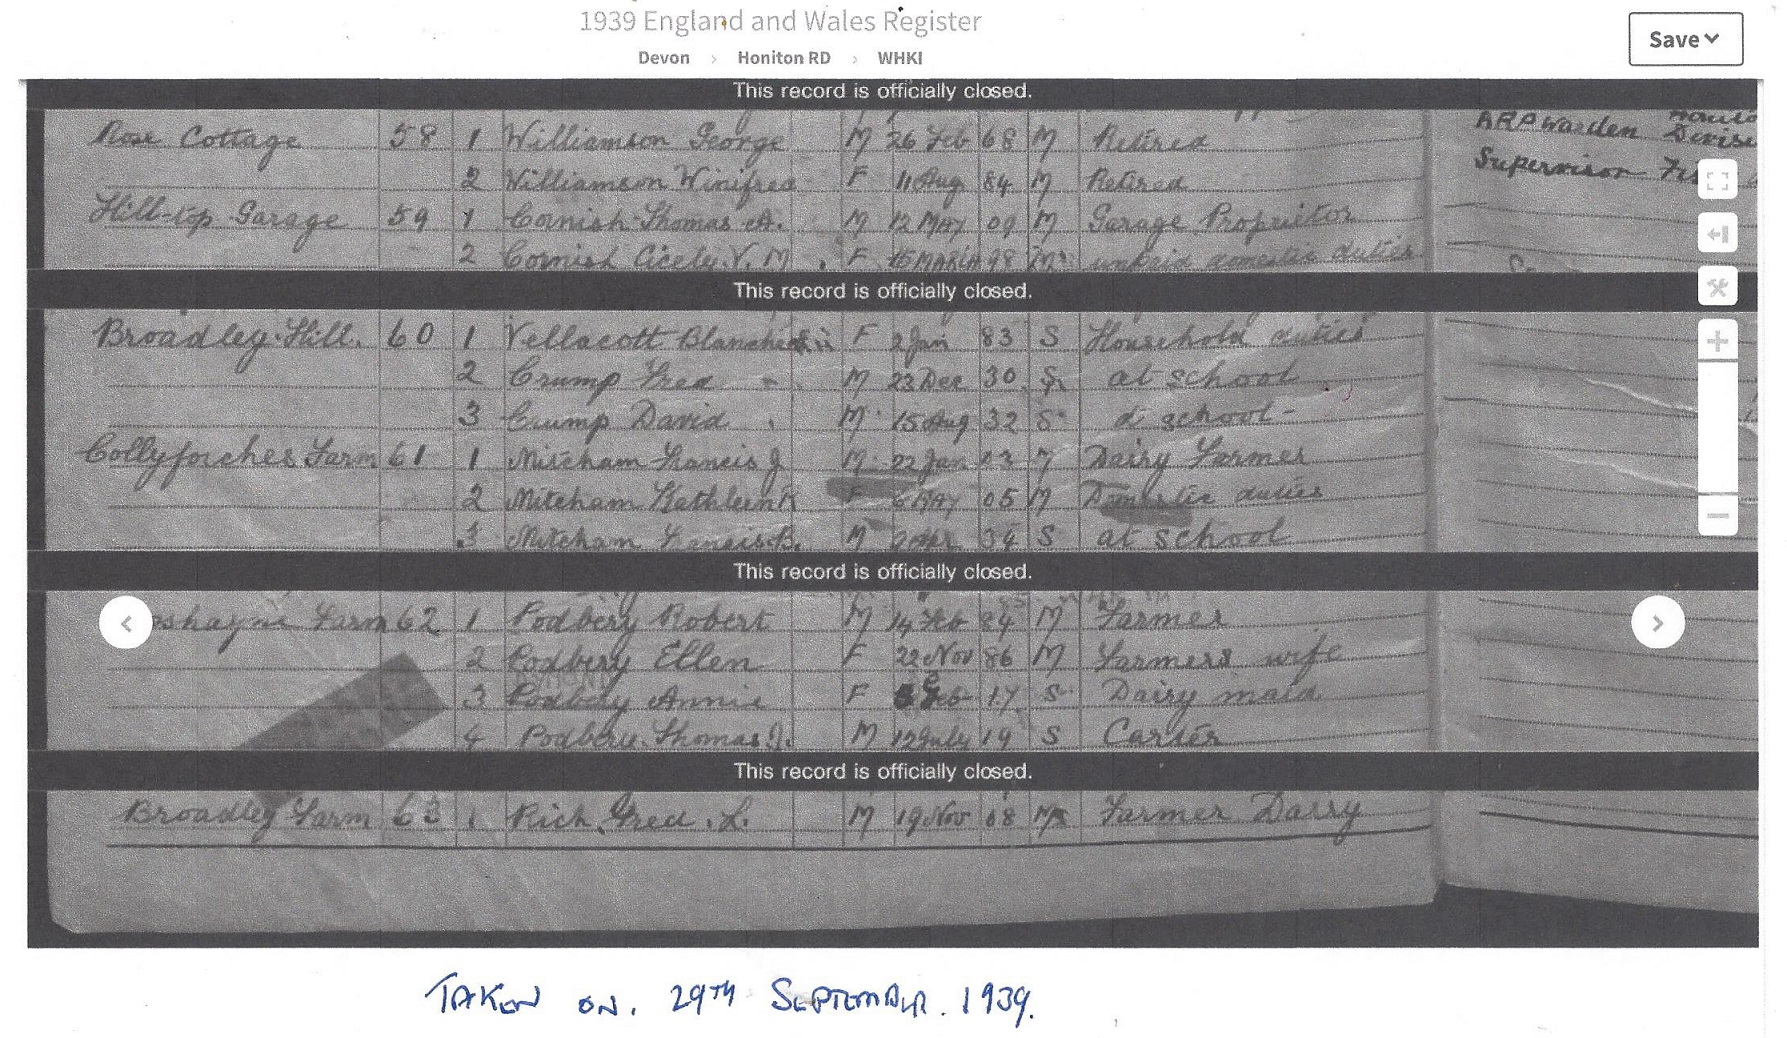 1939 England and Wales Register
Save
Devon > Honiton RD > WHKI
This record is officially closed.
Rose Cottage 58 1 Williamson George M 26 Feb 68 M Retired ARP Warden
2 Williamson Winifred F 11 Aug 84 M Retired Supervisor
Hill-top Garage 59 1 Cornish Thomas A. M 12 May 09 M Garage Proprietor
2 Cornish Cicely. V. M F 98 M unpaid domestic duties
This record is officially closed.
Broadley Hill. 60 1 Vellacott F 2 Jan 83 S Household duties
2 Crump Fred M 23 Dec 30 S at school
3 Crump David M 15 Aug 32 S school
Collyforches Farm 61 1 Mitcham Francis J M 22 Jan 13 M Dairy Farmer
2 Mitcham Kathleen R F 6 May 05 M Domestic duties
3 Mitcham Francis. B. M 34 S at school
This record is officially closed.
shayne Farm 62 1 Podbery Robert M 14 Feb 84 M Farmer
2 Podbery Ellen F 22 Nov 86 M Farmers wife
3 Podbery Annie F Feb 17 S Dairy maid
4 Podbery. Thomas. J. M 12 July 19 S Carter
This record is officially closed.
Broadley Farm 63 1 Rich. Fred. L. M 19 Nov 08 M Farmer Dairy
TAKEN ON. 29TH SEPTEMBER. 1939.